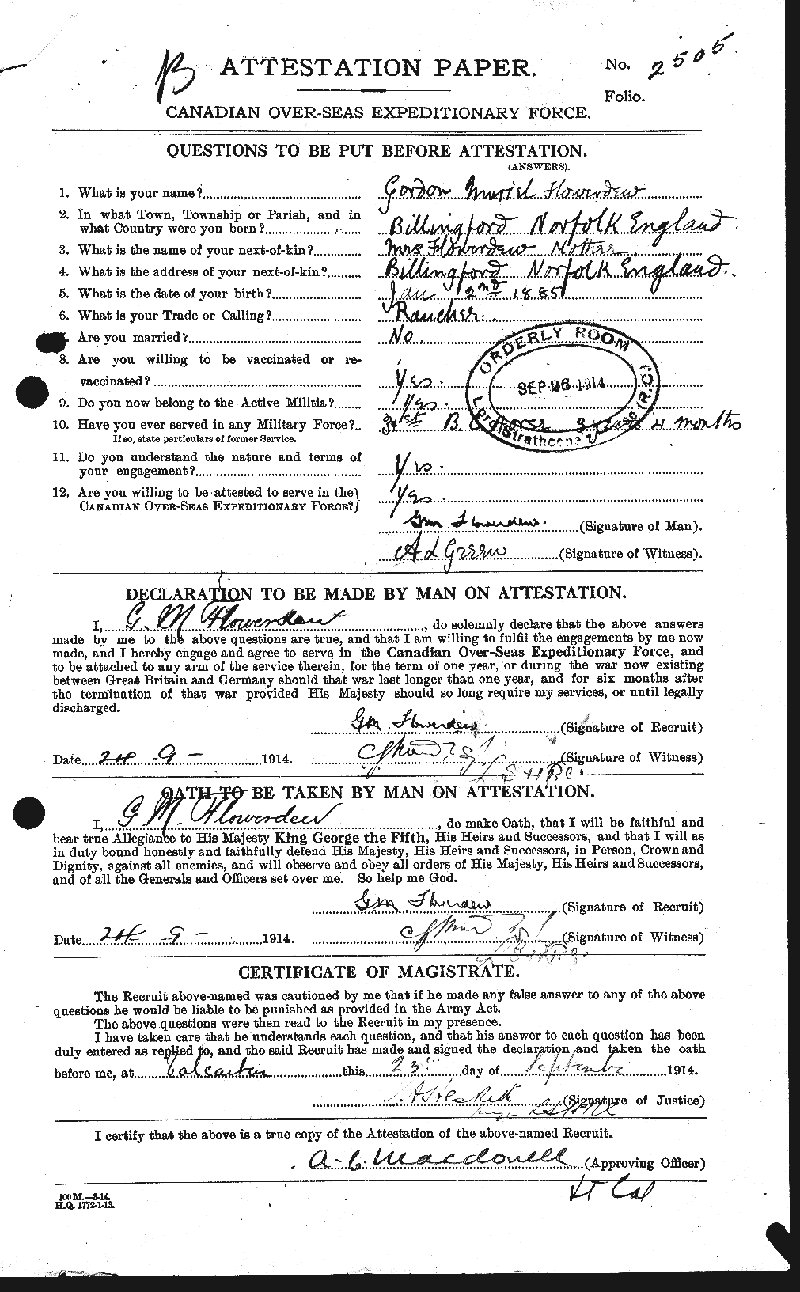 B ATTESTATION PAPER. No. 2505
Folio.
CANADIAN OVER-SEAS EXPEDITIONARY FORCE.
QUESTIONS TO BE PUT BEFORE ATTESTATION.
(ANSWERS).
1. What is your name? Gordon Muriel Flowerdew
2. In what Town, Township or Parish, and in
what Country were you born? Billingford Norfolk England
3. What is the name of your next-of-kin? Mrs Flowerdew Mother
4. What is the address of your next-of-kin? Billingford Norfolk England.
5. What is the date of your birth? Jan 2nd 1885
6. What is your Trade or Calling? Rancher
7. Are you married? No
8. Are you willing to be vaccinated or re-
vaccinated? Yes.
9. Do you now belong to the Active Militia? Yes.
10. Have you ever served in any Military Force? 31st B C Horse 4 months
If so, state particulars of former Service.
ORDERLY ROOM
SEP 26 1914
Lord Strathcona's Horse (R.C.)
11. Do you understand the nature and terms of
your engagement? Yes.
12. Are you willing to be attested to serve in the
CANADIAN OVER-SEAS EXPEDITIONARY FORCE? Yes
GM Flowerdew. (Signature of Man).
A L Green (Signature of Witness).
DECLARATION TO BE MADE BY MAN ON ATTESTATION.
I, G M Flowerdew, do solemnly declare that the above answers
made by me to the above questions are true, and that I am willing to fulfil the engagements by me now
made, and I hereby engage and agree to serve in the Canadian Over-Seas Expeditionary Force, and
to be attached to any arm of the service therein, for the term of one year, or during the war now existing
between Great Britain and Germany should that war last longer than one year, and for six months after
the termination of that war provided His Majesty should so long require my services, or until legally
discharged.
GM Flowerdew (Signature of Recruit)
Date 24 9 - 1914. (Signature of Witness)
OATH TO BE TAKEN BY MAN ON ATTESTATION.
I, G M Flowerdew, do make Oath, that I will be faithful and
bear true Allegiance to His Majesty King George the Fifth, His Heirs and Successors, and that I will as
in duty bound honestly and faithfully defend His Majesty, His Heirs and Successors, in Person, Crown and
Dignity, against all enemies, and will observe and obey all orders of His Majesty, His Heirs and Successors,
and of all the Generals and Officers set over me. So help me God.
GM Flowerdew (Signature of Recruit)
Date 24 9 - 1914. (Signature of Witness)
CERTIFICATE OF MAGISTRATE.
The Recruit above-named was cautioned by me that if he made any false answer to any of the above
questions he would be liable to be punished as provided in the Army Act.
The above questions were then read to the Recruit in my presence.
I have taken care that he understands each question, and that his answer to each question has been
duly entered as replied to, and the said Recruit has made and signed the declaration and taken the oath
before me, at Valcartier this 23 day of September 1914.
(Signature of Justice)
I certify that the above is a true copy of the Attestation of the above-named Recruit.
A. C. Macdonell (Approving Officer)
Lt Col
100 M.—8-14.
H.Q. 1772-1-13.